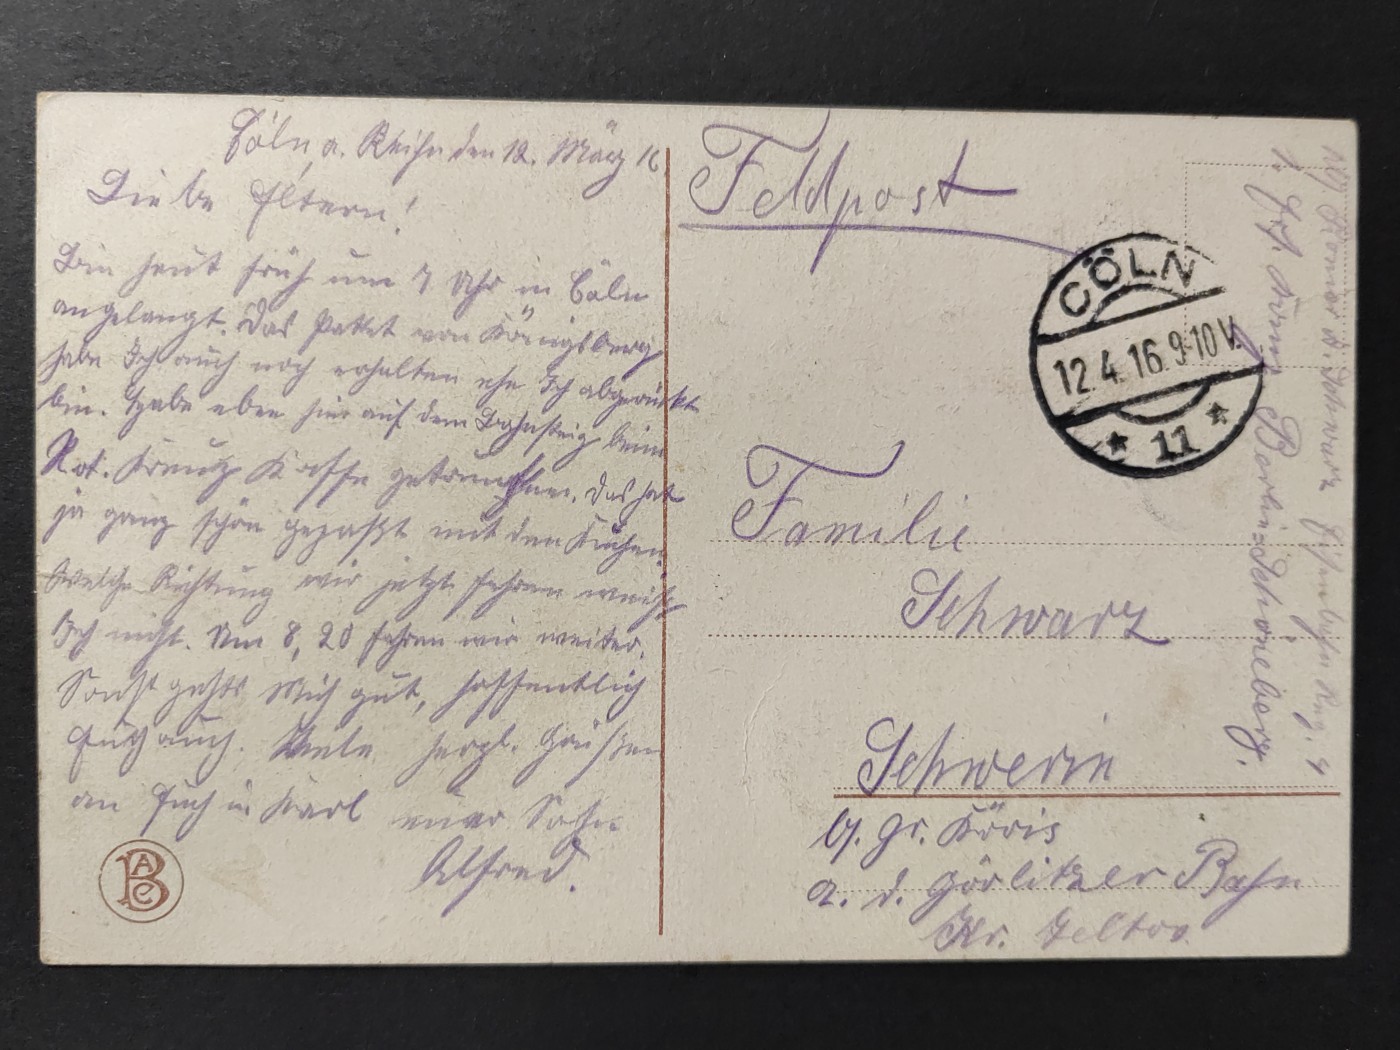 Cöln a. Rhein den 12. März 16
Liebe Eltern!
Bin heut früh um 7 Uhr in Cöln
angelangt. Das Paket von Königsberg
habe Ich auch noch erhalten ehe Ich abgerückt
bin. Habe eben hier auf dem Bahnsteig beim
Rot. Kreutz Kaffe getrunken. Das hat
ja ganz schön gepaßt mit den Kuchen.
Welche Richtung wir jetzt fahren weiß
Ich nicht. Um 8,20 fahren wir weiter.
Sonst gehts Mich gut, hoffentlich
Euch auch. Viele herzl. Grüßen
an Euch u Karl euer Sohn
Alfred.
BAC
Feldpost
CÖLN
12.4.16.9-10V.
* 11 *
Familie
Schwarz
Schwerin
b. Gr. Köris
a. d. Görlitzer Bahn
Kr. Teltow
Schwarz Eisenbahn Rgt. 4
Berlin-Schöneberg.